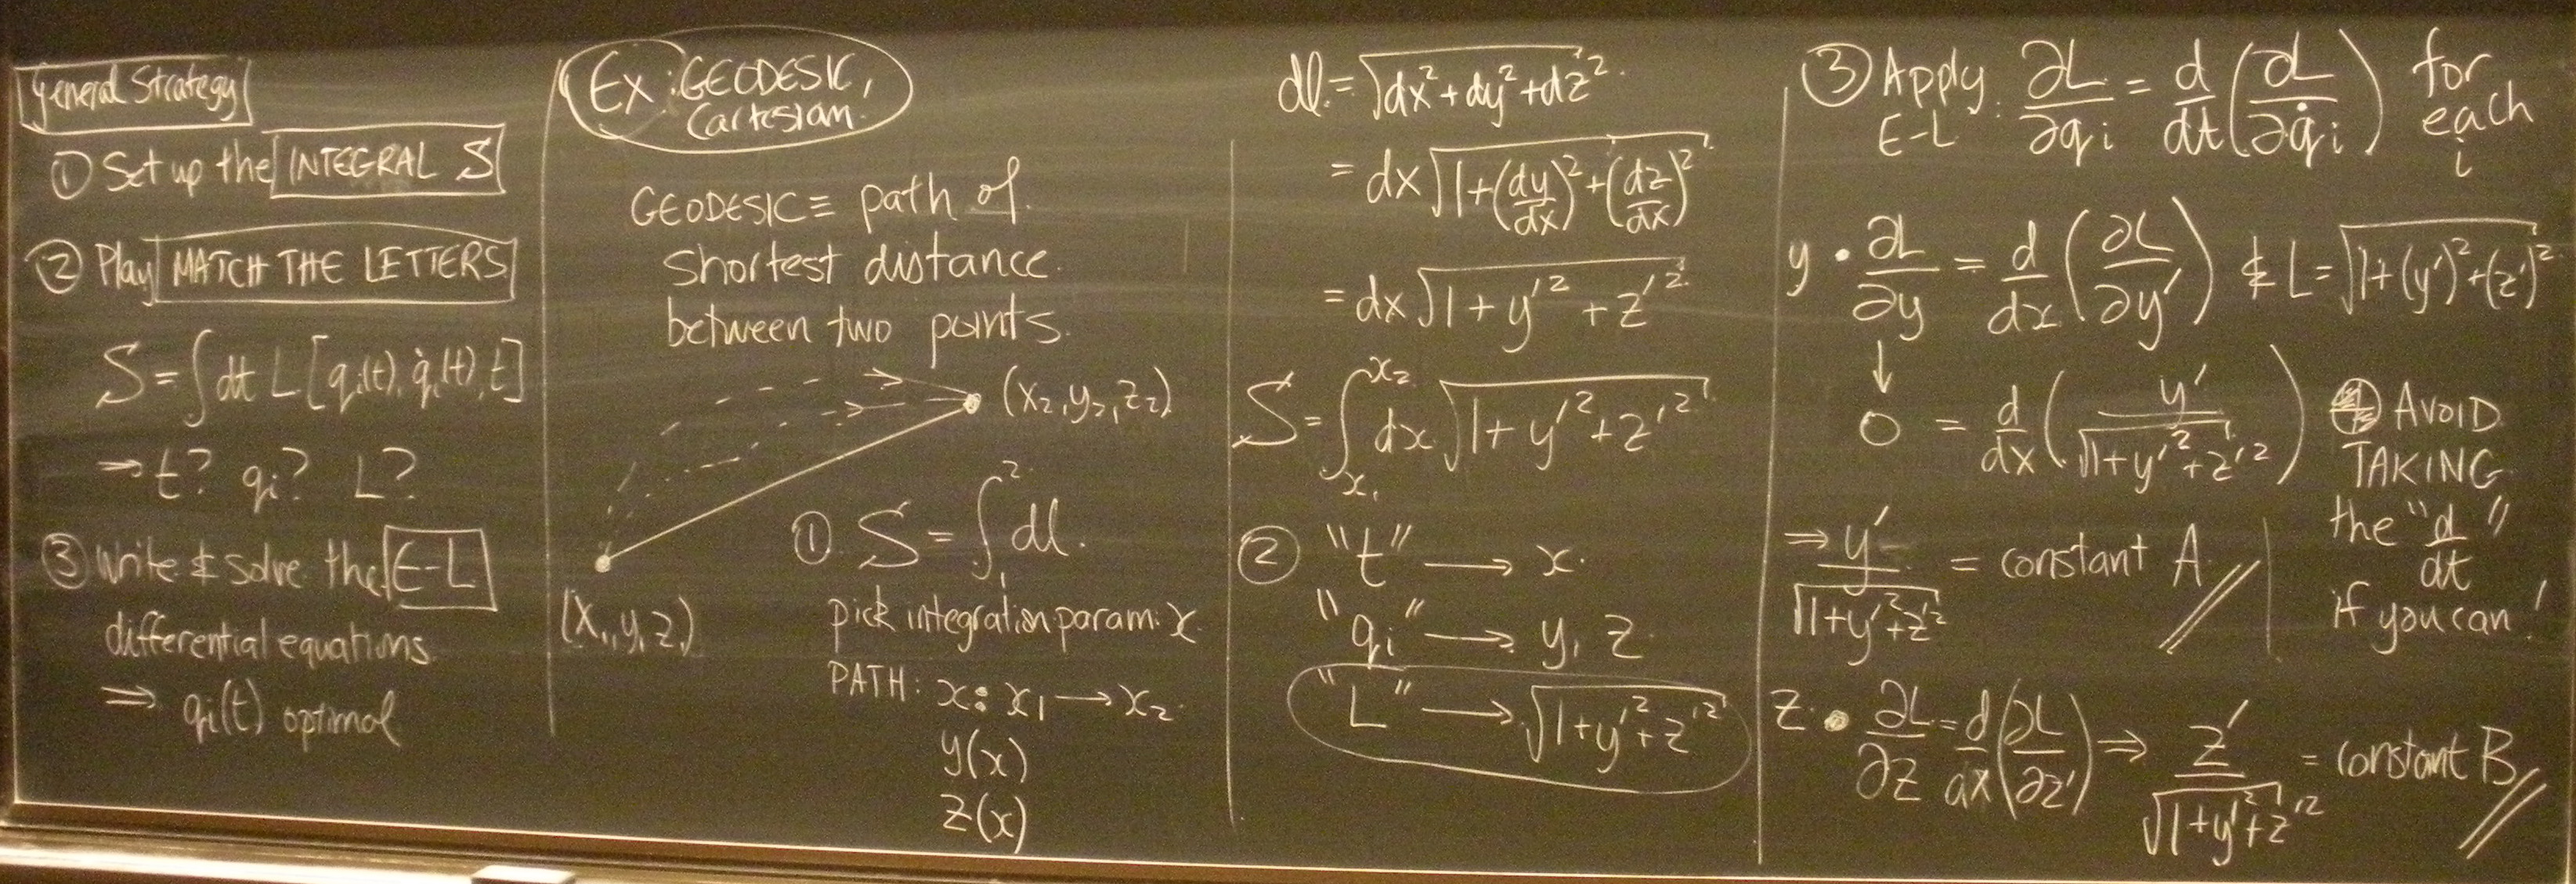 General Strategy
① Set up the INTEGRAL S
② Play MATCH THE LETTERS
S = ∫ dt L [qi(t), q̇i(t), t]
→ t? qi? L?
③ Write & solve the E-L
differential equations
⇒ qi(t) optimal
Ex: GEODESIC,
Cartesian.
GEODESIC ≡ path of
shortest distance
between two points.
(x₂, y₂, z₂)
(x₁, y₁, z₁)
① S = ∫₁² dl.
pick integration param: x
PATH: x: x₁ → x₂
y(x)
z(x)
dl = √(dx² + dy² + dz²)
= dx √(1 + (dy/dx)² + (dz/dx)²)
= dx √(1 + y'² + z'²)
S = ∫ₓ₁ˣ² dx √(1 + y'² + z'²)
② "t" → x
"qi" → y, z
"L" → √(1 + y'² + z'²)
③ Apply E-L: ∂L/∂qi = d/dt (∂L/∂q̇i) for each i
y • ∂L/∂y = d/dx (∂L/∂y') & L = √(1 + (y')² + (z')²)
↓
0 = d/dx (y' / √(1 + y'² + z'²))
⇒ y' / √(1 + y'² + z'²) = constant A
AVOID
TAKING
the "d/dt"
if you can!
z • ∂L/∂z = d/dx (∂L/∂z') ⇒ z' / √(1 + y'² + z'²) = constant B